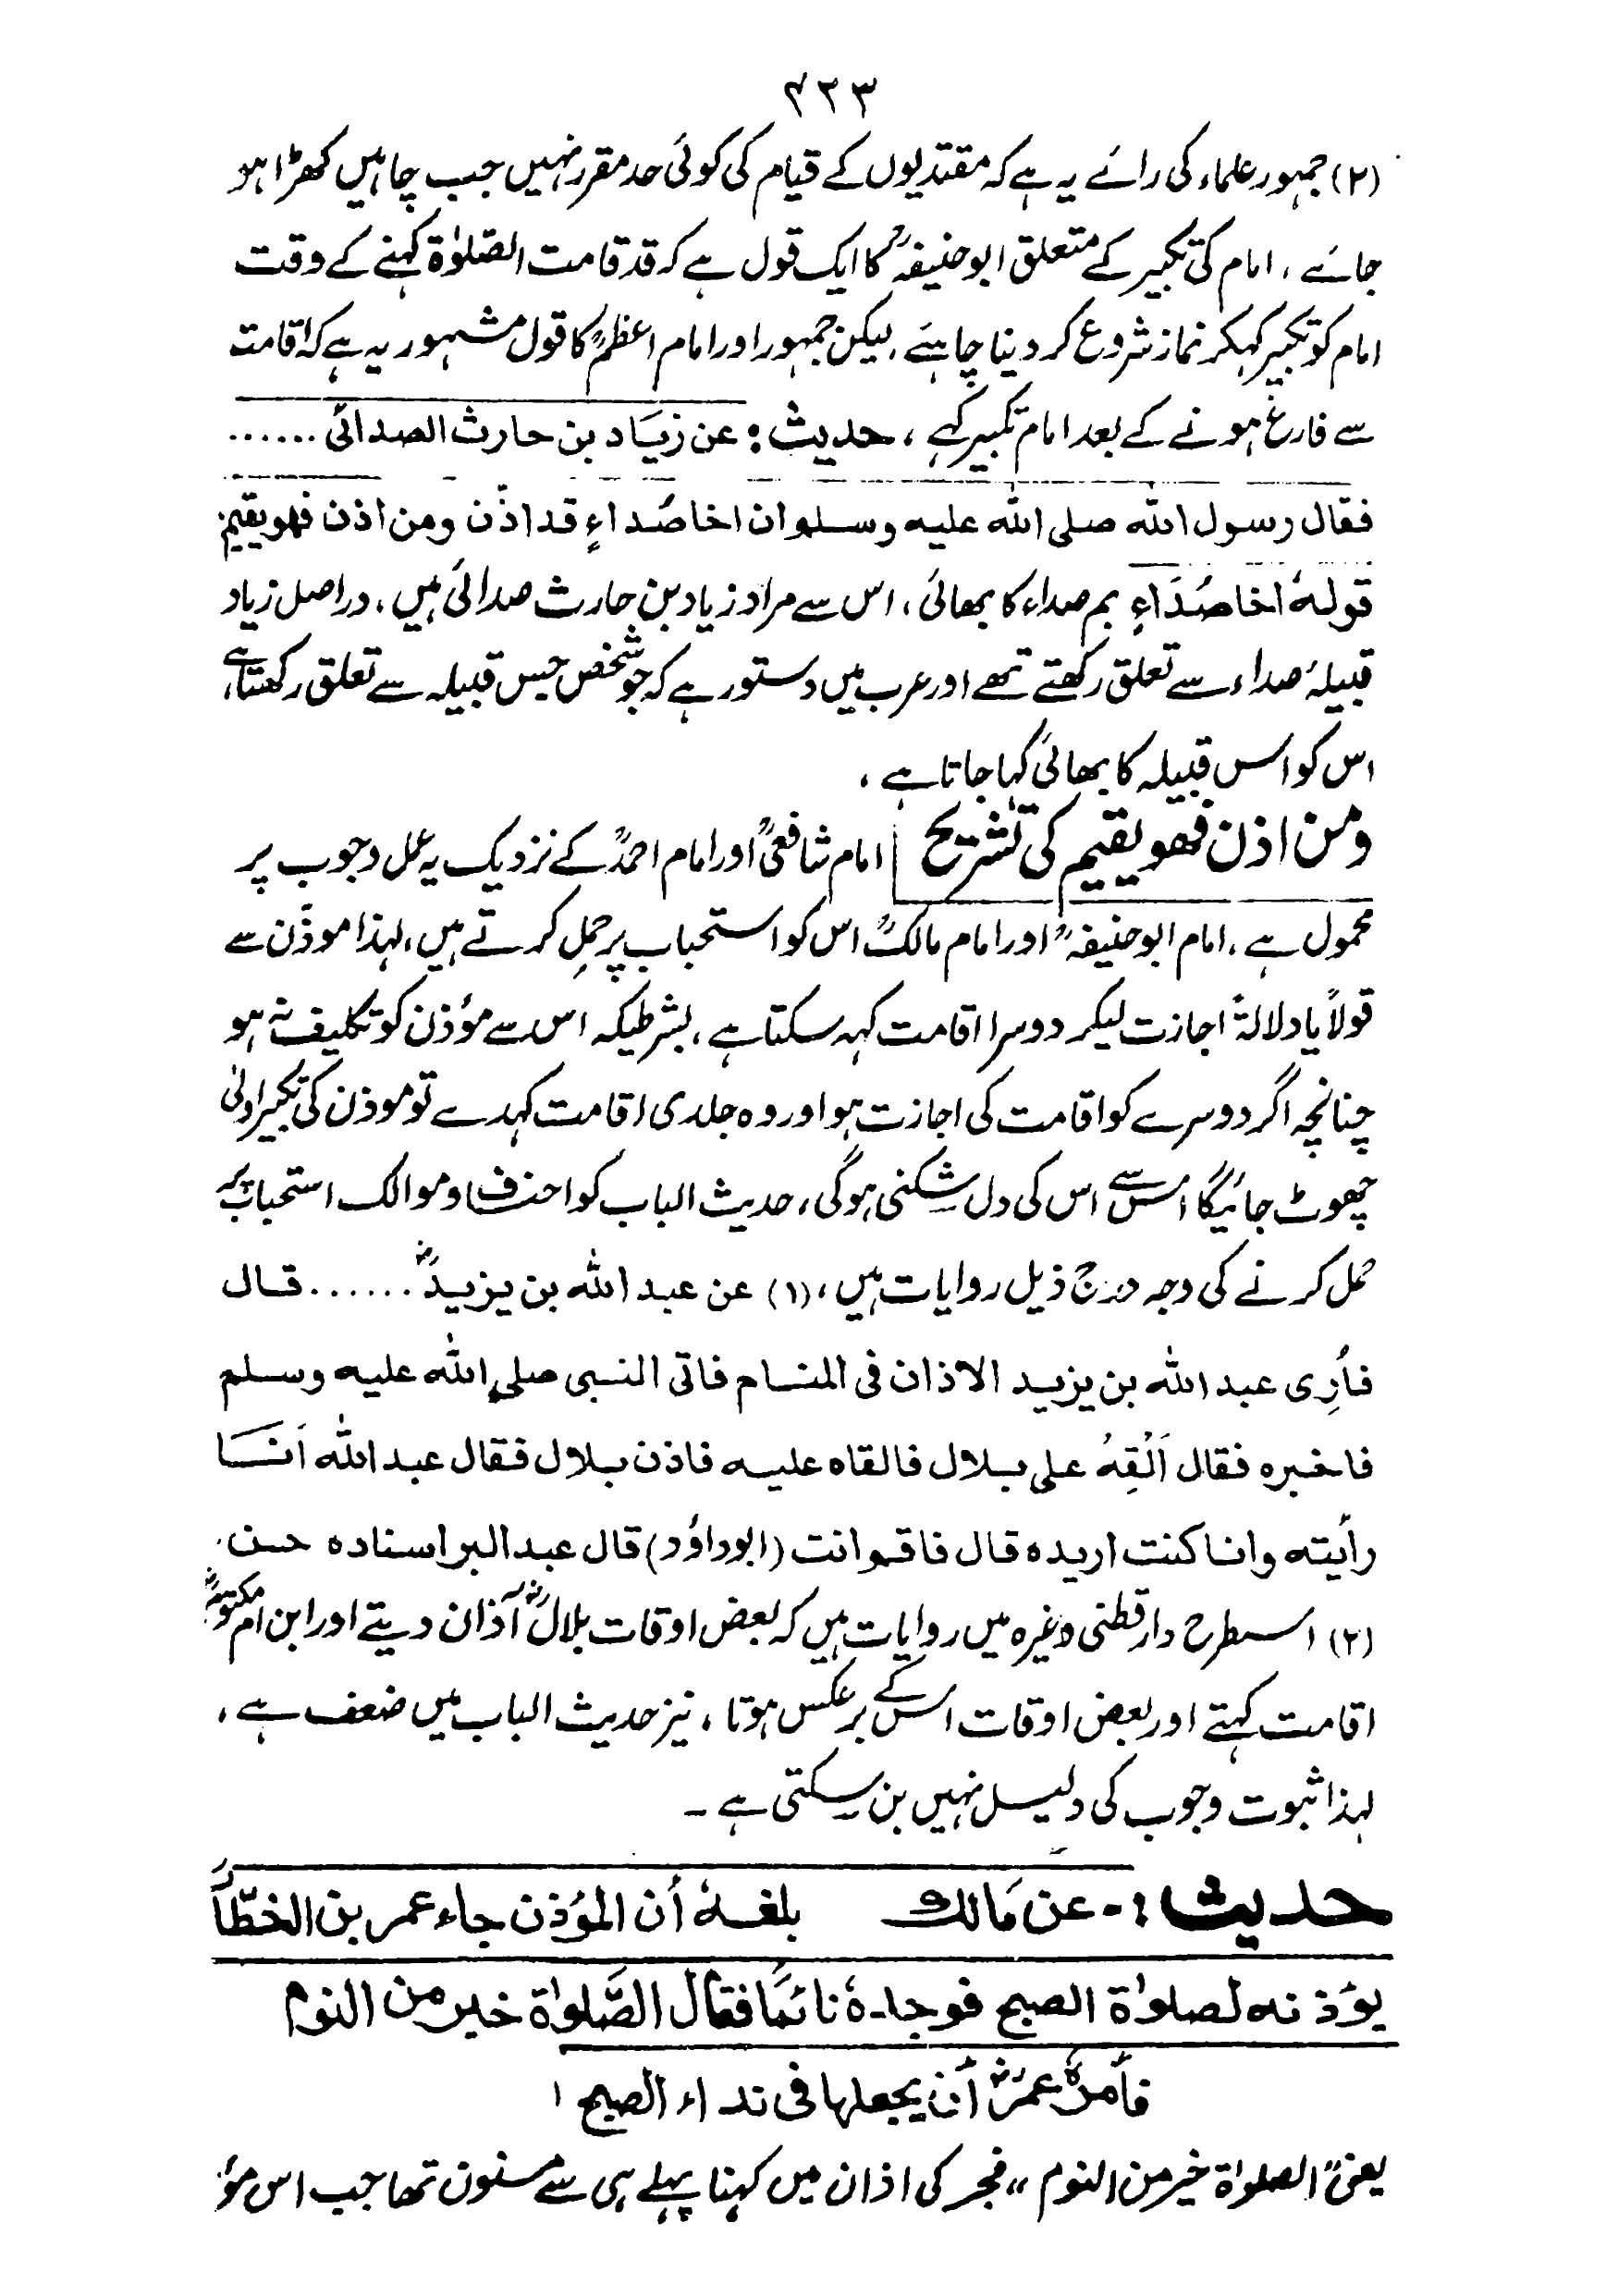 ۴۲۳
(۲) جمہور علماء کی رائے یہ ہے کہ مقتدیوں کے قیام کی کوئی حد مقرر نہیں جب چاہیں کھڑا ہو
جائے ، امام کی تکبیر کے متعلق ابو حنیفہؒ کا ایک قول ہے کہ قد قامت الصّلوٰۃ کہنے کے وقت
امام کو تکبیر کہکر نماز شروع کر دینا چاہیئے ، لیکن جمہور اور امام اعظمؒ کا قول مشہور یہ ہے کہ اقامت
سے فارغ ہونے کے بعد امام تکبیر کہے ، حدیث : عن زیَاد بن حارث الصدائی ......
فقال رسول اللہ صلی اللہ علیہ وسلم ان اخا صُداءٍ قد اذّن ومن اذن فھو یقیم
قولہٗ اخا صُدَاءٍ بم صداء کا بھائی ، اس سے مراد زیاد بن حارث صدائی ہیں ، دراصل زیاد
قبیلۂ صداء سے تعلق رکھتے تھے اور عرب میں دستور ہے کہ جو شخص جس قبیلہ سے تعلق رکھتا ہے ،
اس کو اس قبیلہ کا بھائی کہا جاتا ہے ،
ومن اذن فھو یقیم کی تشریح امام شافعیؒ اور امام احمدؒ کے نزدیک یہ عمل وجوب پر
محمول ہے ، امام ابو حنیفہؒ اور امام مالکؒ اس کو استحباب پر حمل کرتے ہیں ، لہذا موذّن سے
قولاً یا دلالۃً اجازت لیکر دوسرا اقامت کہہ سکتا ہے ، بشرطیکہ اس سے مؤذن کو تکلیف نہ ہو
چنانچہ اگر دوسرے کو اقامت کی اجازت ہو اور وہ جلدی اقامت کہدے تو موذن کی تکبیر اولیٰ
چھوٹ جائیگا اس سے اس کی دل شکنی ہوگی ، حدیث الباب کو احناف و موالک استحباب پر
حمل کرنے کی وجہ درج ذیل روایات ہیں ، (۱) عن عبد اللہ بن یزیدؓ ...... قال
فأُرِی عبد اللہ بن یزید الاذان فی المنام فاتی النبی صلی اللہ علیہ وسلم
فاخبرہ فقال اَلْقِہُ علی بلال فالقاہ علیہ فاذن بلال فقال عبد اللہ اَنَا
رأیتہ وانا کنت اریدہ قال فاقم انت (ابوداؤد) قال عبد البر اسنادہ حسن
(۲) اسطرح دارقطنی وغیرہ میں روایات ہیں کہ بعض اوقات بلالؓ آذان دیتے اور ابن ام مکتومؓ
اقامت کہتے اور بعض اوقات اس کے برعکس ہوتا ، نیز حدیث الباب میں ضعف ہے ،
لہذا ثبوت وجوب کی دلیل نہیں بن سکتی ہے ۔
حدیث :- عن مَالك بلغہٗ أن المؤذن جاء عمر بن الخطّاب
یؤذنہ لصلوٰۃ الصبح فوجدہٗ نائمًا فقال الصَّلوٰۃ خیر من النوم
فأمرہٗ عمرؓ أن یجعلھا فی نداء الصبح ،
یعنی "الصلوٰۃ خیر من النوم" فجر کی اذان میں کہنا پہلے ہی سے مسنون تھا جب اس مؤ